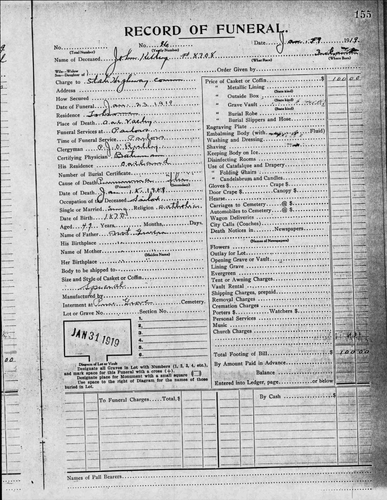 155
RECORD OF FUNERAL.
No. 86 Date Jan 29 1919
(Total Number) (Yearly Number)
Name of Deceased John # 8708
Wife - Widow
Son - Daughter of
Order Given by
Charge to State Highway Comm
Price of Casket or Coffin $ 100 00
Address
" Metallic Lining
How Secured
" Outside Box
Date of Funeral Jan 1919
" Grave Vault
Residence
" Burial Robe
Place of Death
" Burial Slippers and Hose
Funeral Services at Parlors
Engraving Plate
Time of Funeral Services
Embalming Body (with Fluid)
Clergyman
Washing and Dressing
Certifying Physician
Shaving
His Residence Oakland
Keeping Body on Ice
Number of Burial Certificate
Disinfecting Rooms
Cause of Death Pneumonia
Use of Catafalque and Drapery
" Folding Chairs
Date of Death Jan
" Candelabrum and Candles
Occupation of the Deceased
Gloves $ Crape $
Single or Married Religion Catholic
Door Crape $ Candy $
Date of Birth 1870
Hearse
Carriages to Cemetery @ $
Aged 49 Years Months, Days.
Automobiles to Cemetery @ $
Name of Father
Wagon Deliveries
His Birthplace
City Calls (Coaches)
Name of Mother
Death Notices in Newspapers
(Maiden Name)
(Names of Newspapers)
Her Birthplace
Flowers
Body to be shipped to
Outlay for Lot
Size and Style of Casket or Coffin
Opening Grave or Vault
Special
Lining Grave
Evergreen
Manufactured by
Tent or Awning Charges
Interment at Pine Grove Cemetery.
Vault Rental
Lot or Grave No. Section No.
Shipping Charges, prepaid
Removal Charges
Cremation Charges
Porters $ Watchers $
Personal Services
Music
Church Charges
JAN 31 1919
1.
2.
3.
4.
5.
6.
7.
8.
9.
10.
Total Footing of Bill $ 100 00
By Amount Paid in Advance
Balance
Entered into Ledger, page or below.
Diagram of Lot or Vault
Designate all Graves in Lot with Numbers (1, 2, 3, 4, etc.),
and mark space for this Funeral with a cross (+).
Designate place for Monument with a small square
Use space to the right of Diagram for the names of those
buried in Lot.
To Funeral Charges, Total $
By Cash $
Names of Pall Bearers